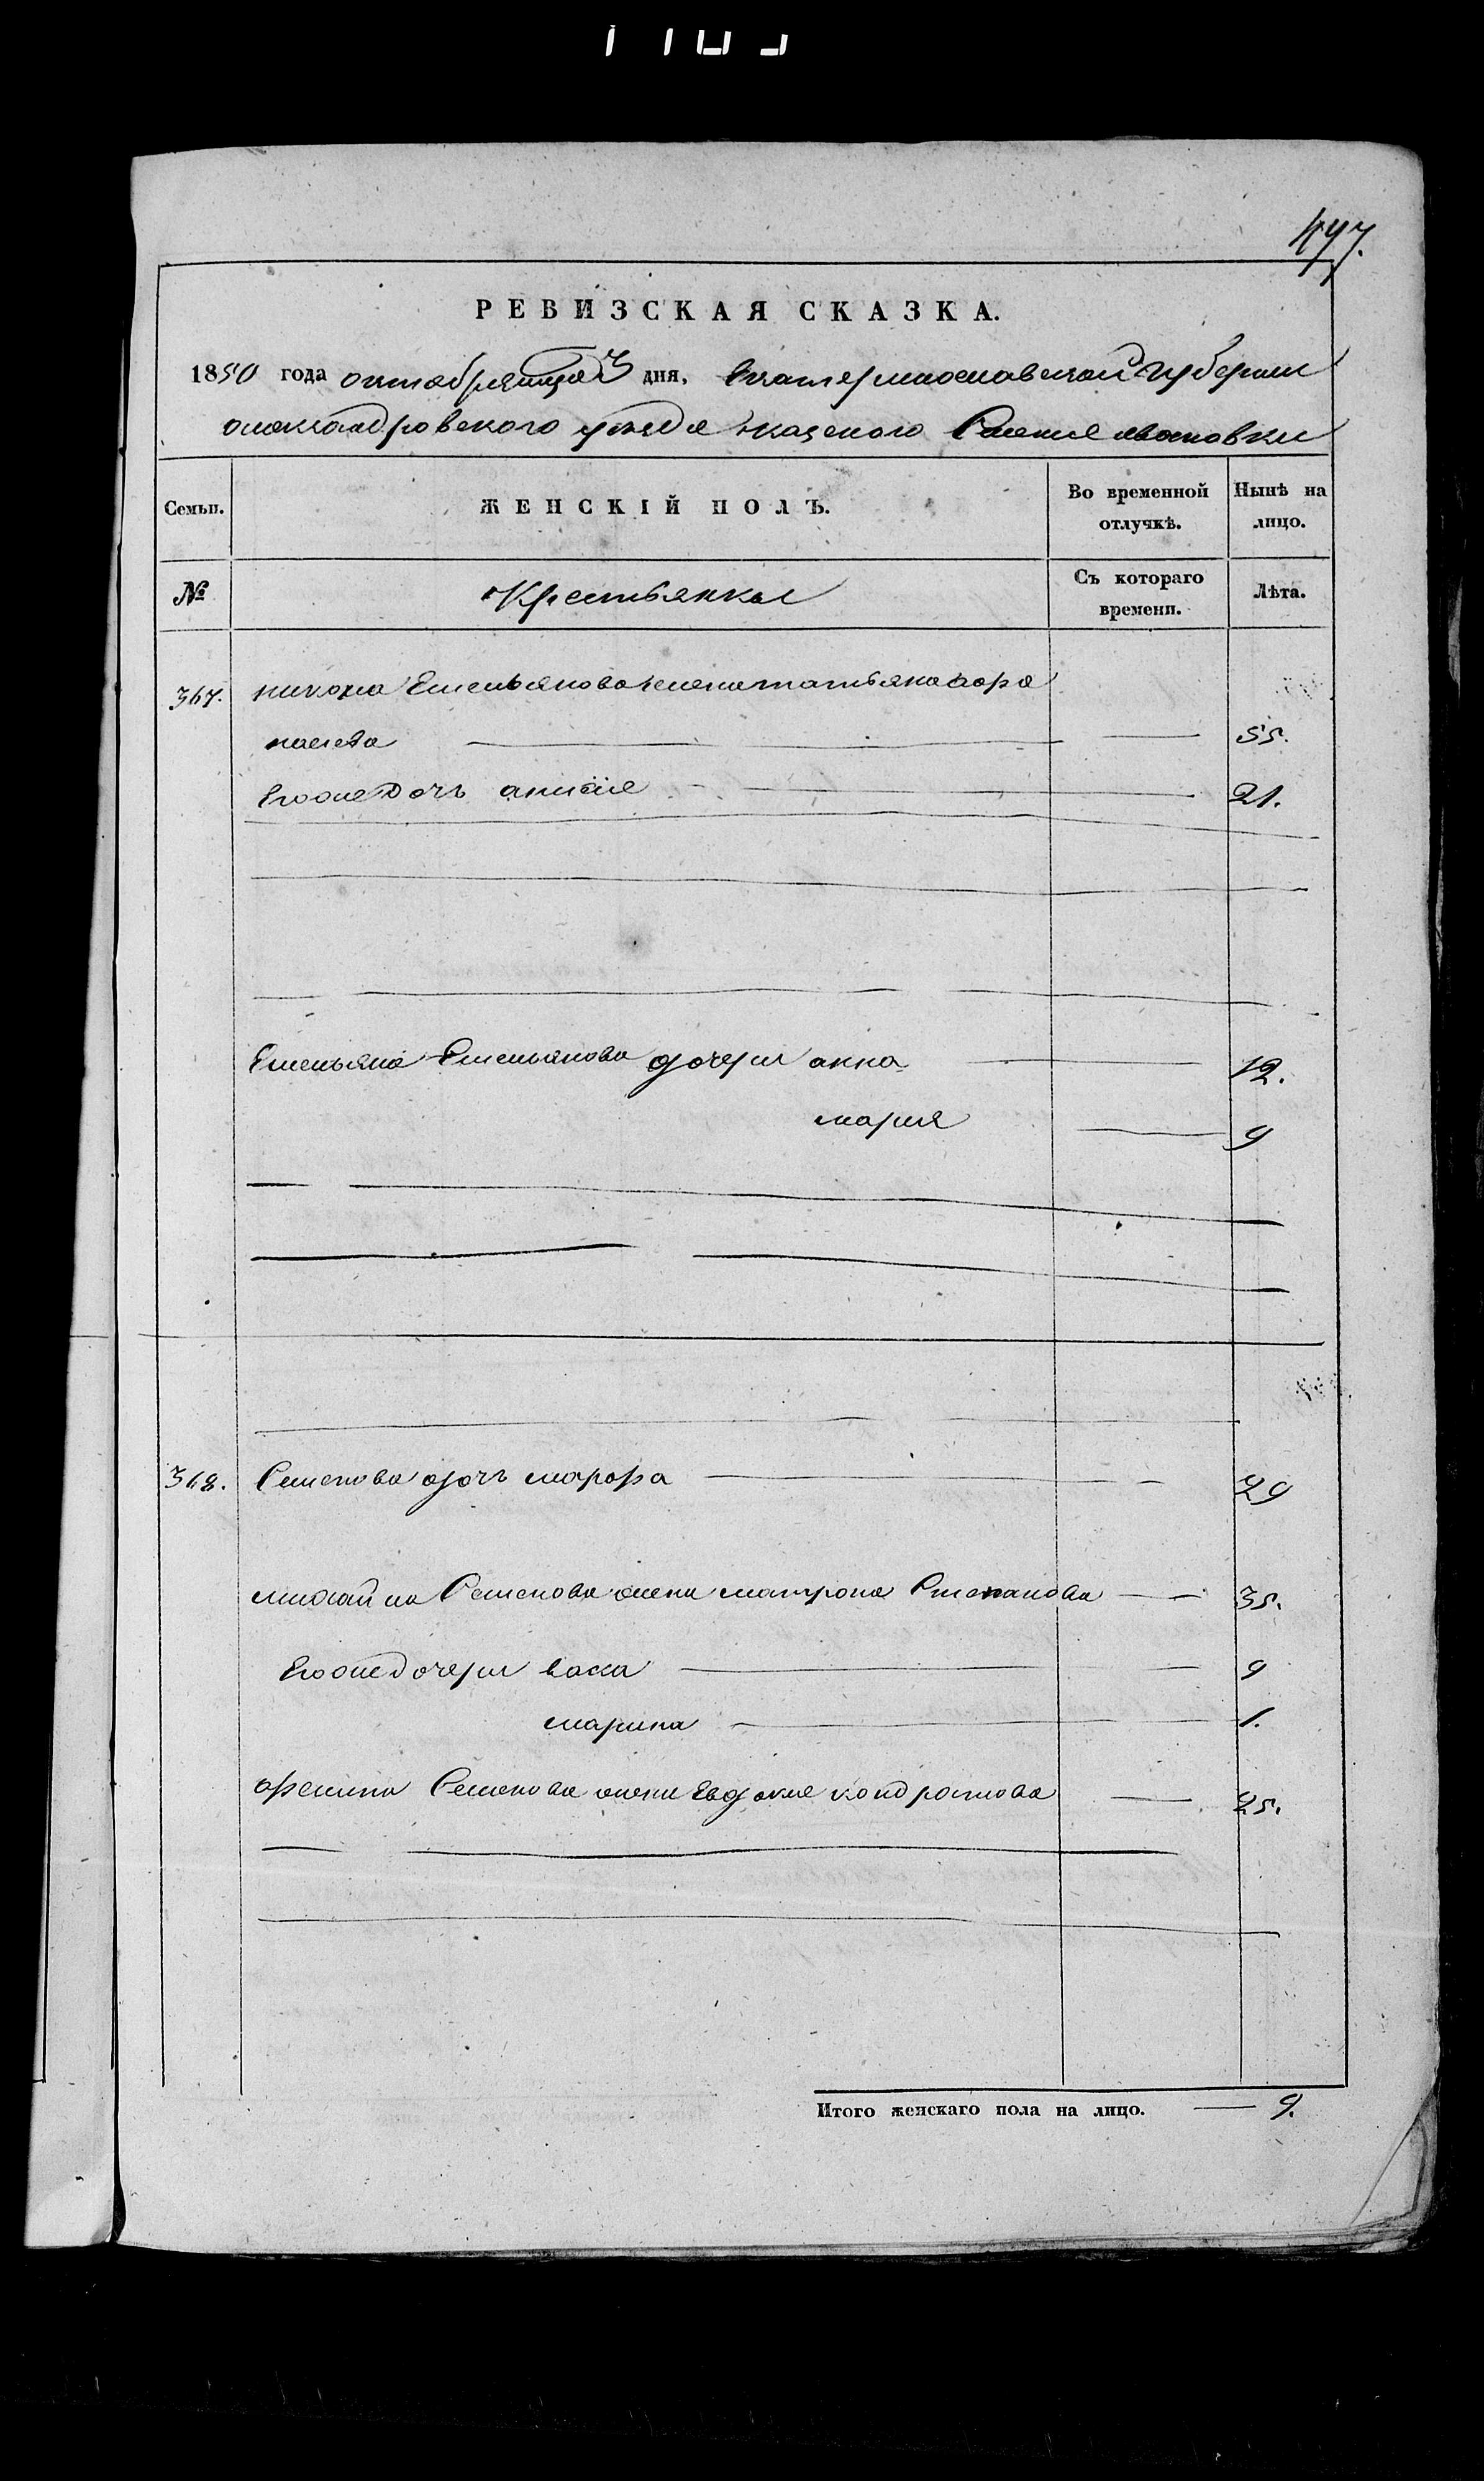 497.
РЕВИЗСКАЯ СКАЗКА.
1850 года октября месяца 3 дня, Екатеринославской губернии
александровского уезда казеного Селения
Семьи. ЖЕНСКІЙ ПОЛЪ. Во временной отлучкѣ. Нынѣ на лицо.
№ Крестьянки Съ котораго времени. Лѣта.
367. Емельянова жена татьяна
55.
Егоже дочь анисія 21.
Емельяна Емельянова дочери анна 12.
мария 9
368. Семенова дочь марфа 29
михайла Семенова жена матрона Степанова 35.
Егоже дочери васа 9
марина 1.
Семенова жена Евдокия кондратова 25.
Итого женскаго пола на лицо. 9.